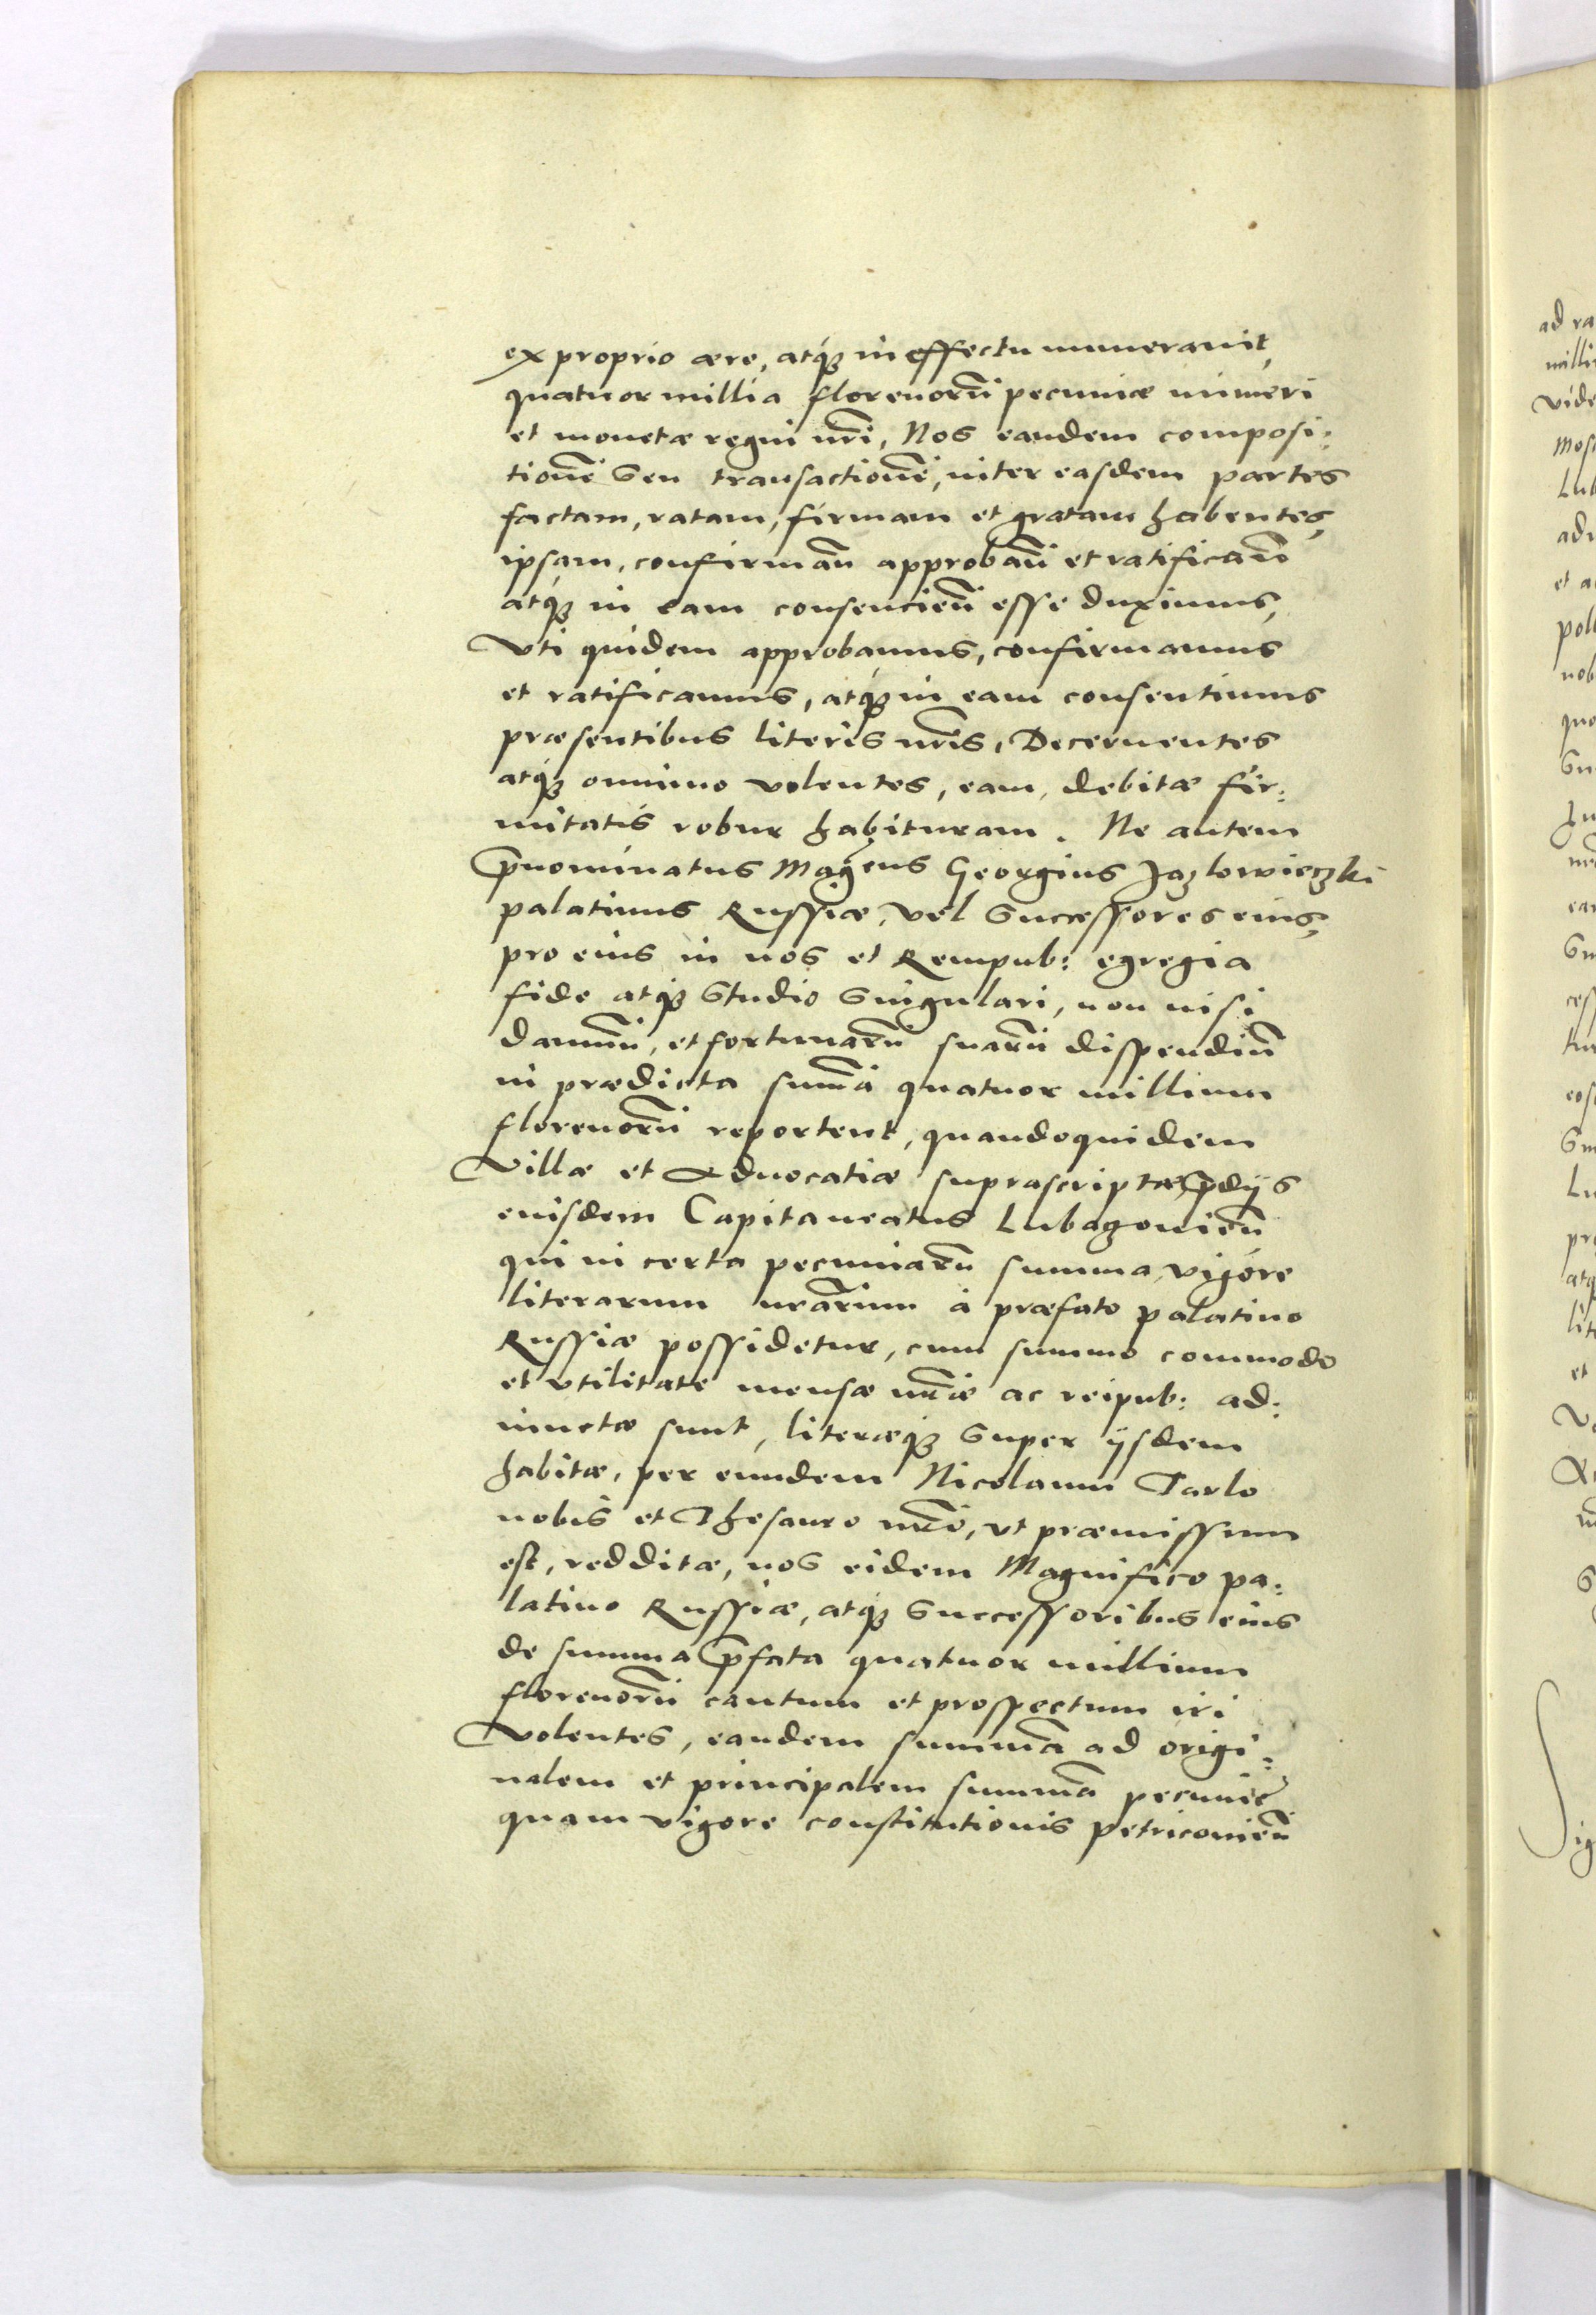 ex proprio aere, atq́ꝫ in effectu numerauit,
quatuor millia florenorū pecuniæ numeri
et monetæ regni nr̄i, Nos eandem composi:
tionē seu transactionē, inter easdem partes
factam, ratam, firmam et gratam habentes,
ipsam, confirmañ approbañ et ratificañ
atq́ꝫ in eam consencieñ esse duximus,
Vti quidem approbamus, confirmamus
et ratificamus, atq́ꝫ in eam consentimus
præsentibus literis nr̄is, Decernentes
atq́ꝫ omnino volentes, eam, debitæ fir:
mitatis robur habituram. Ne autem
p̄nominatus Mag̃cus Georgius Jazlowieczki
palatinus Russiæ, vel successores eius,
pro eius in nos et Rempub: egregia
fide atq́ꝫ studio singulari, non nisi
damnū, et fortunarū suarū dispendiū
in prædicta summa quatuor millium
florenorū reportent, quandoquidem
Villæ et Aduocatiæ suprascriptæ, p̄dijs
eiusdem Capitaneatus Lubaczouieñ
qui in certa pecuniarū summa, vigore
literarum nrārum à præfato palatino
Russiæ possidetur, cum summo commodo
et vtilitate mensæ nr̄æ ac reipub: ad:
iunctæ sunt, literæq́ꝫ super ijsdem
habitæ, per eundem Nicolaum Tarlo
nobis et Thesauro nr̄o, vt præmissum
est, redditæ, nos eidem Magnifico pa:
latino Russiæ, atq́ꝫ successoribus eius
de summa p̄fata quatuor millium
florenorū cautum et prospectum iri
Volentes, eandem summā ad origi:
nalem et principalem summā pecuniæ
quam vigore constitutionis petriconieñ